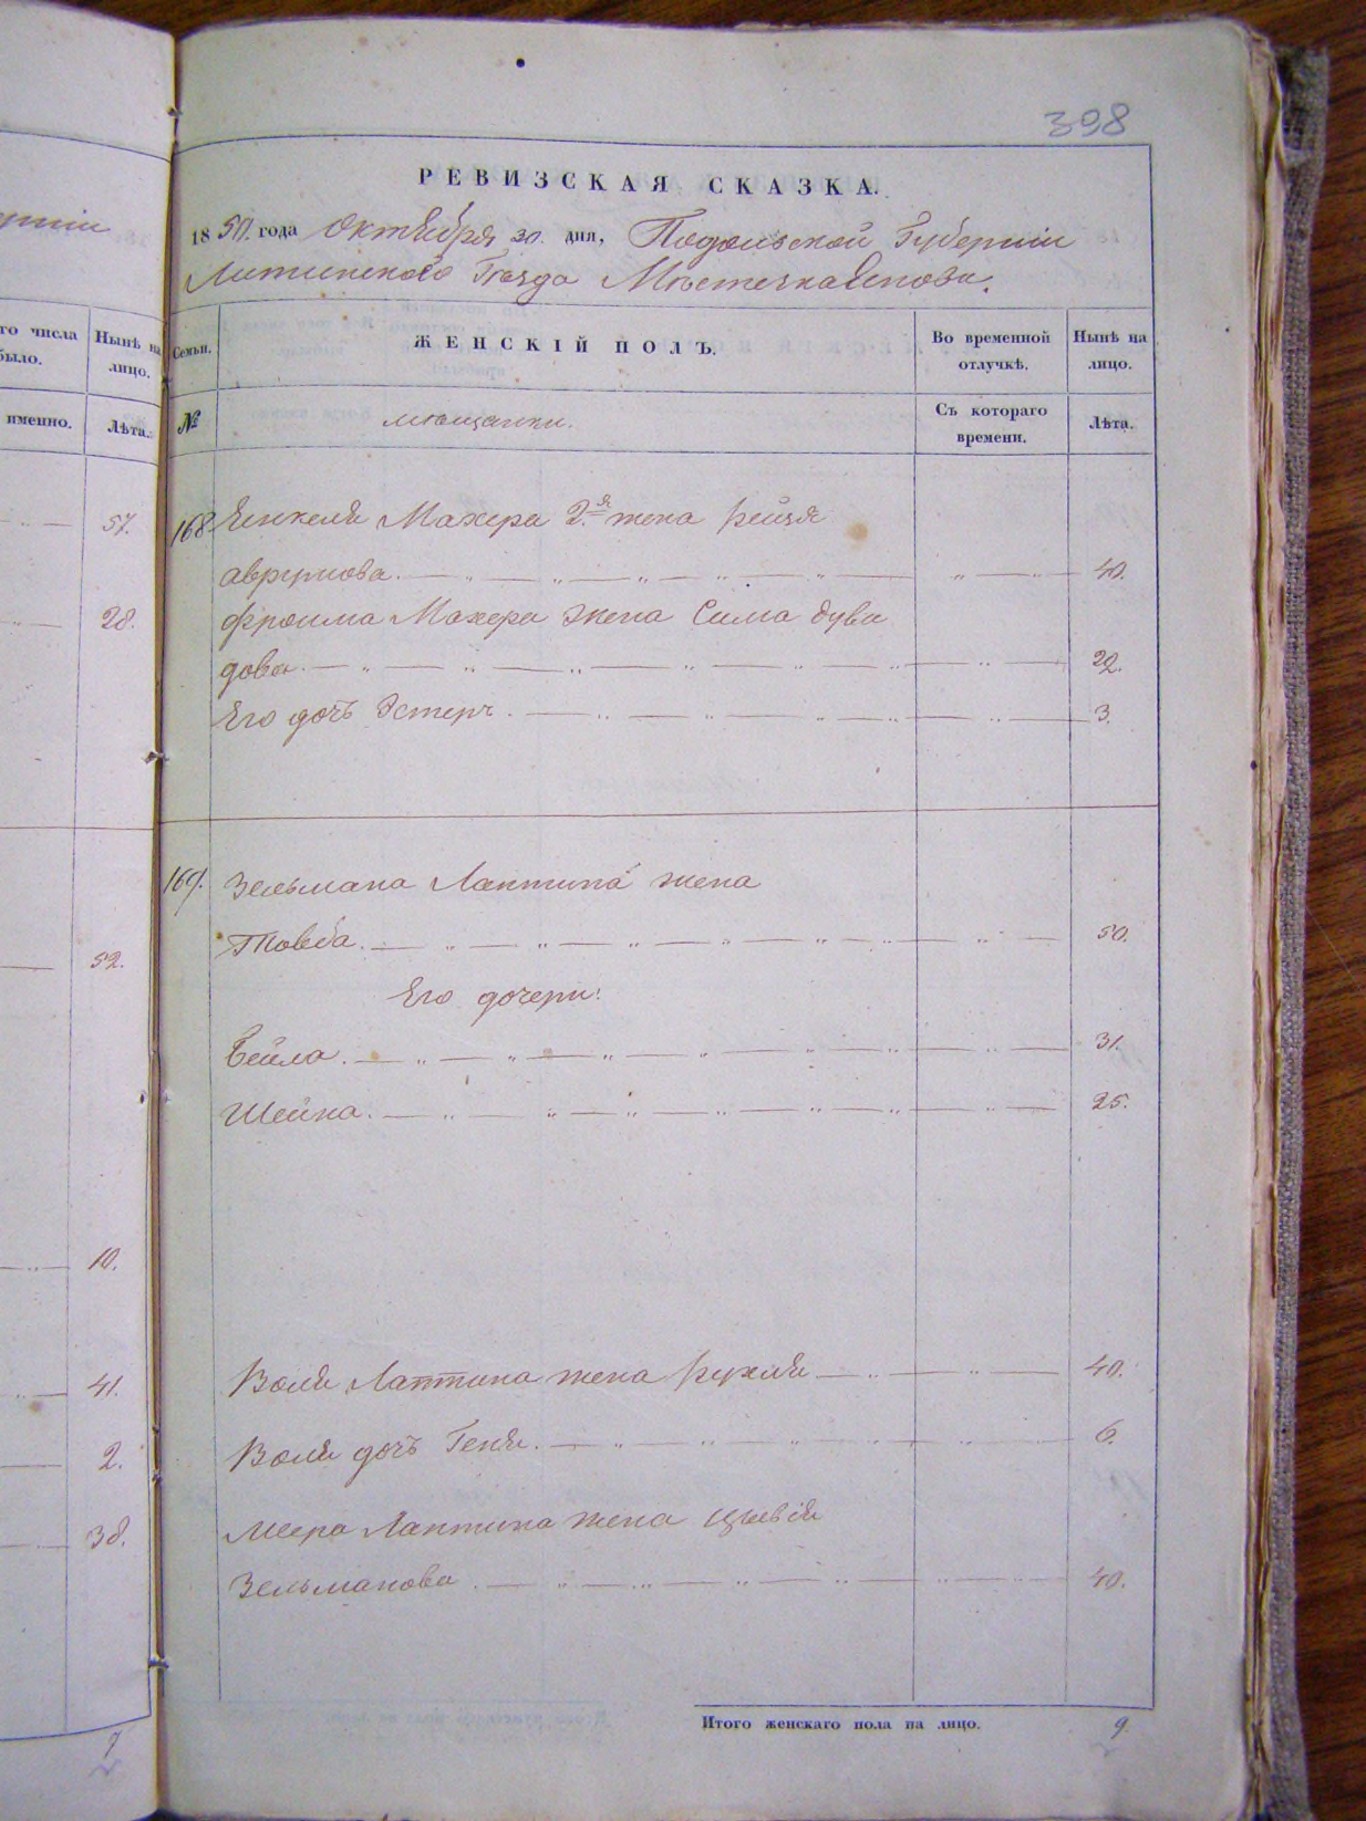 ерніи
го числа
было.
Нынѣ на
лицо.
именно.
Лѣта.
57.
28.
52.
10.
41.
2.
38.
7
398
РЕВИЗСКАЯ СКАЗКА.
1850. года Октября 30. дня, Подольской Губерніи
Литинского Уезда Мѣстечка
Семьи.
ЖЕНСКІЙ ПОЛЪ.
Во временной
отлучкѣ.
Нынѣ на
лицо.
№
мѣщанки.
Съ котораго
времени.
Лѣта.
168 Янкеля Махера 2.я жена Рейзя
Аврумова. 40.
Фроима Махера жена Сима Дуви
дова. 22.
Его дочь Эстерь. 3.
169. Зельмана Лаптина жена
Товба. 50.
Его дочери:
Бейла. 31.
Шейна. 25.
Воля Лаптина жена Рухля 40.
Воля дочь Геня. 6.
Меера Лаптина жена Цывія
Зельманова. 40.
Итого женскаго пола на лицо. 9.